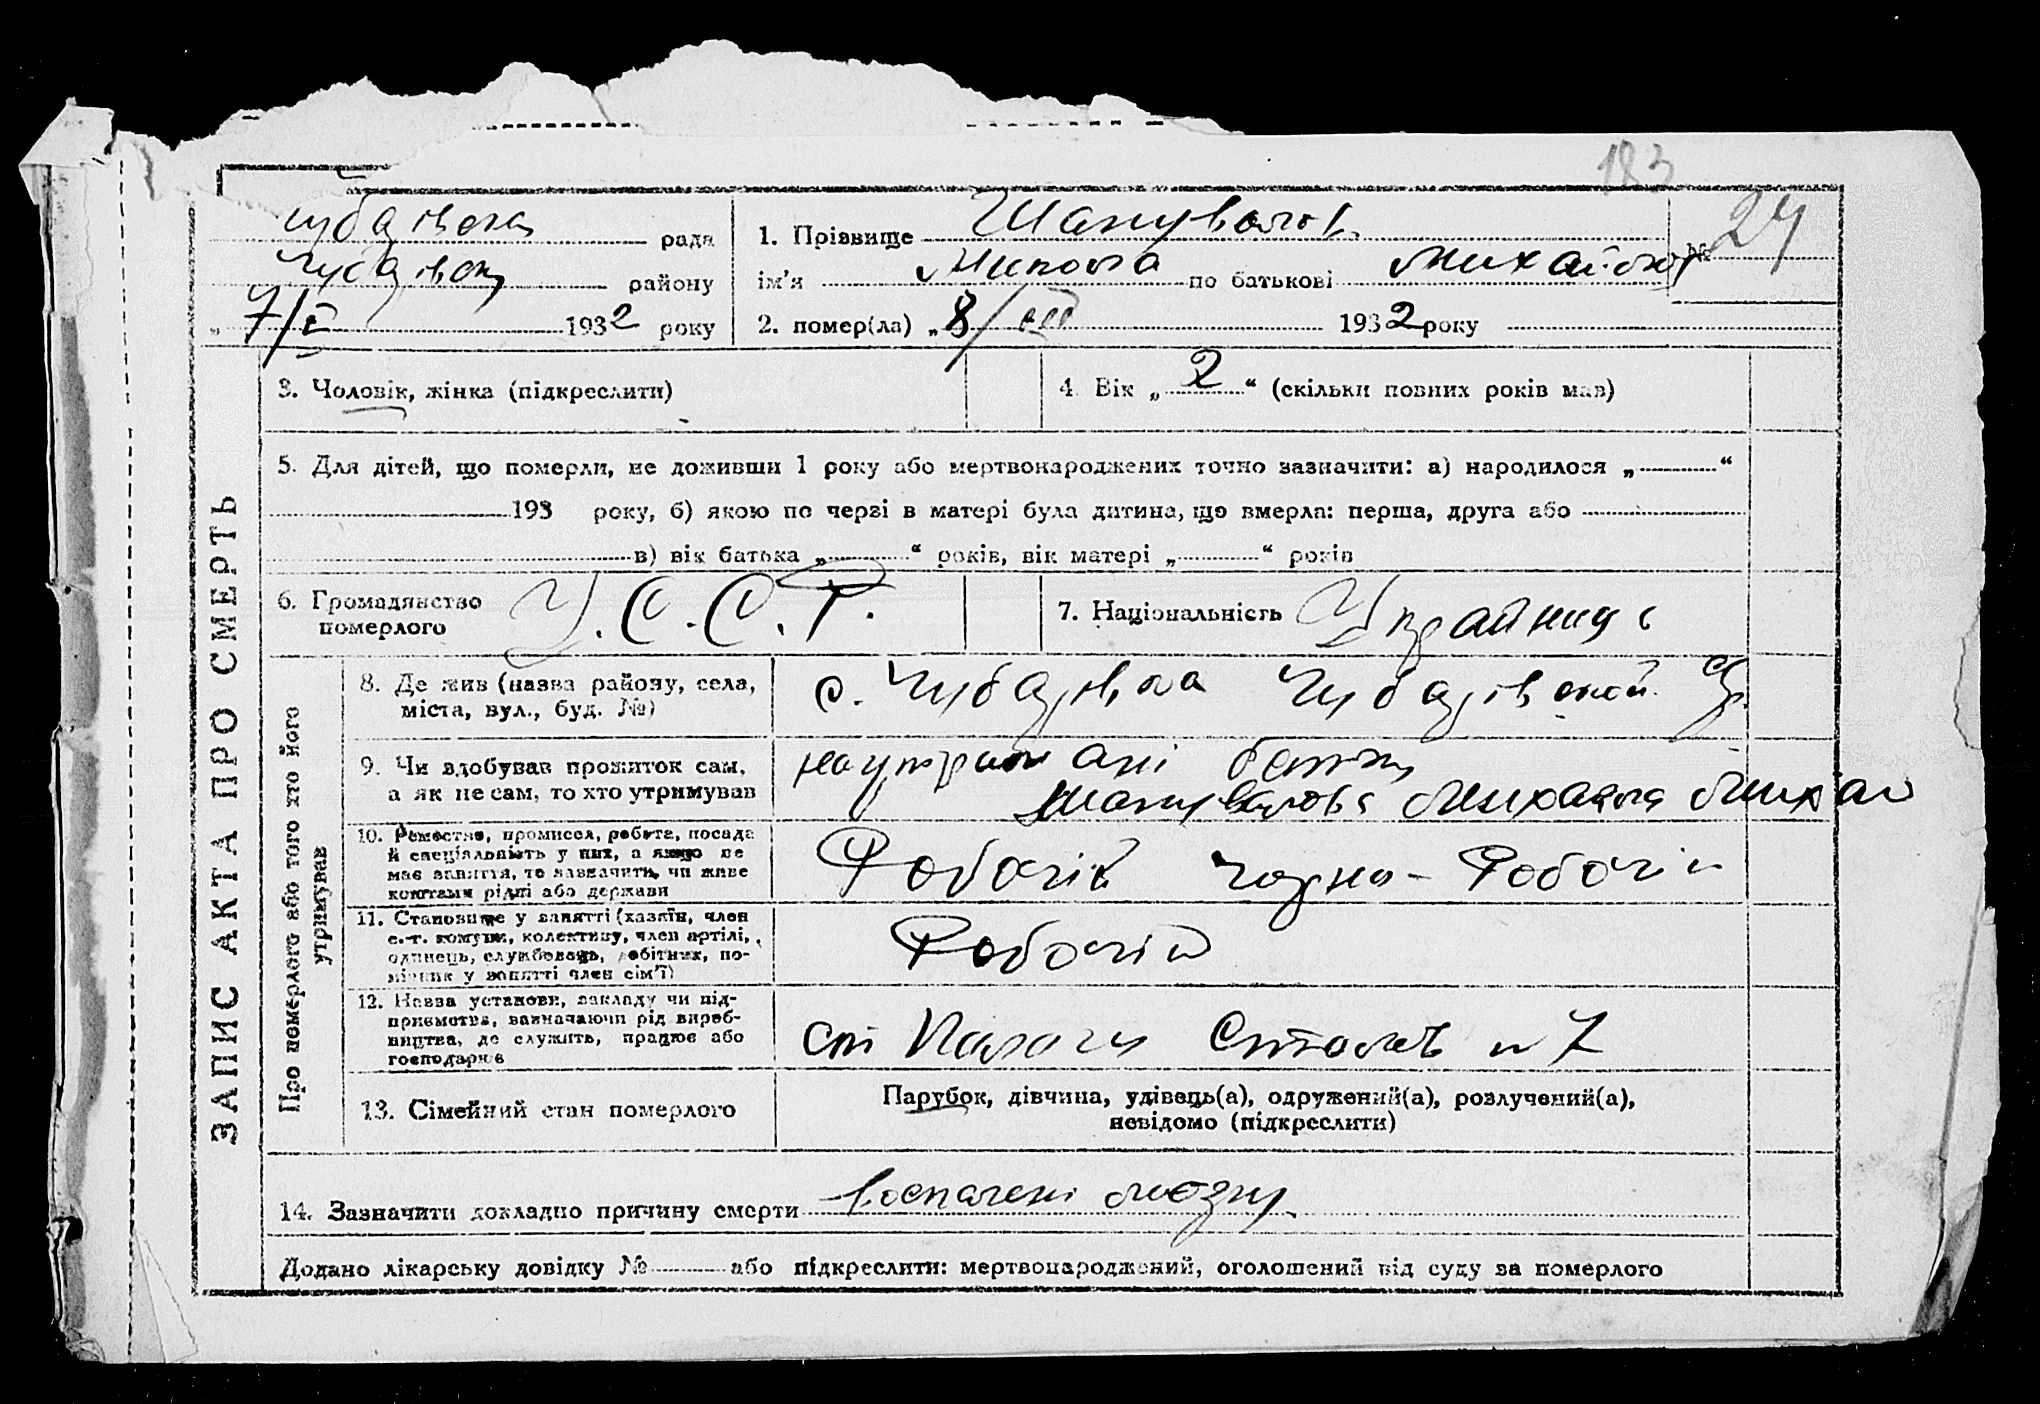 183
Чубарівська рада
1. Прізвище Шапувалов
№ 24
Чубарівськ району
ім'я Микола по батькові Михайлов
„ 7/V 1932 року
2. помер(ла) „ 8/ІІІ 1932 року
ЗАПИС АКТА ПРО СМЕРТЬ
3. Чоловік, жінка (підкреслити)
4. Вік „ 2 “ (скільки повних років мав)
5. Для дітей, що померли, не доживши 1 року або мертвонароджених точно зазначити: а) народилося „ “
193 року, б) якою по черзі в матері була дитина, що вмерла: перша, друга або
в) вік батька „ “ років, вік матері „ “ років
6. Громадянство
померлого
У.С.С.Р.
7. Національність Украйниць
Про померлого або того хто його
утримував
8. Де жив (назва району, села,
міста, вул., буд. №)
с. Чубарівка Чубарівской
9. Чи здобував прожиток сам,
а як не сам, то хто утримував
на утримані батька
Шапувалова Михаила Михай
10. Ремество, промисел, робота, посада
й спеціяльність у них, а якщо не
має заняття, то зазначити, чи живе
коштами рідні або держави
Робочій чорно-Робочій
11. Становище у занятті (хазяїн, член
с.-г. комуни, колективу, член артілі,
одинець, службовець, робітник, по-
мічник у занятті член сім'ї)
Робочій
12. Назва установи, закладу чи під-
приємства, зазначаючи рід вироб-
ництва, де служить, працює або
господарює
ст Пологи Столов № 7
13. Сімейний стан померлого
Парубок, дівчина, удівець(а), одружений(а), розлучений(а),
невідомо (підкреслити)
14. Зазначити докладно причину смерти воспалені мозку
Додано лікарську довідку № або підкреслити: мертвонароджений, оголошений від суду за померлого